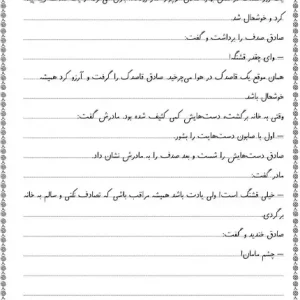 کرد و خوشحال شد.
صادق صدف را برداشت و گفت:
— وای چقدر قشنگ!
همان موقع یک قاصدک در هوا می‌چرخید. صادق قاصدک را گرفت و آرزو کرد همیشه
خوشحال باشد.
وقتی به خانه برگشت، دست‌هایش کمی کثیف شده بود. مادرش گفت:
— اول با صابون دست‌هایت را بشور.
صادق دست‌هایش را شست و بعد صدف را به مادرش نشان داد.
مادر گفت:
— خیلی قشنگ است! ولی یادت باشد همیشه مراقب باشی که تصادف نکنی و سالم به خانه
برگردی.
صادق خندید و گفت:
— چشم مامان!